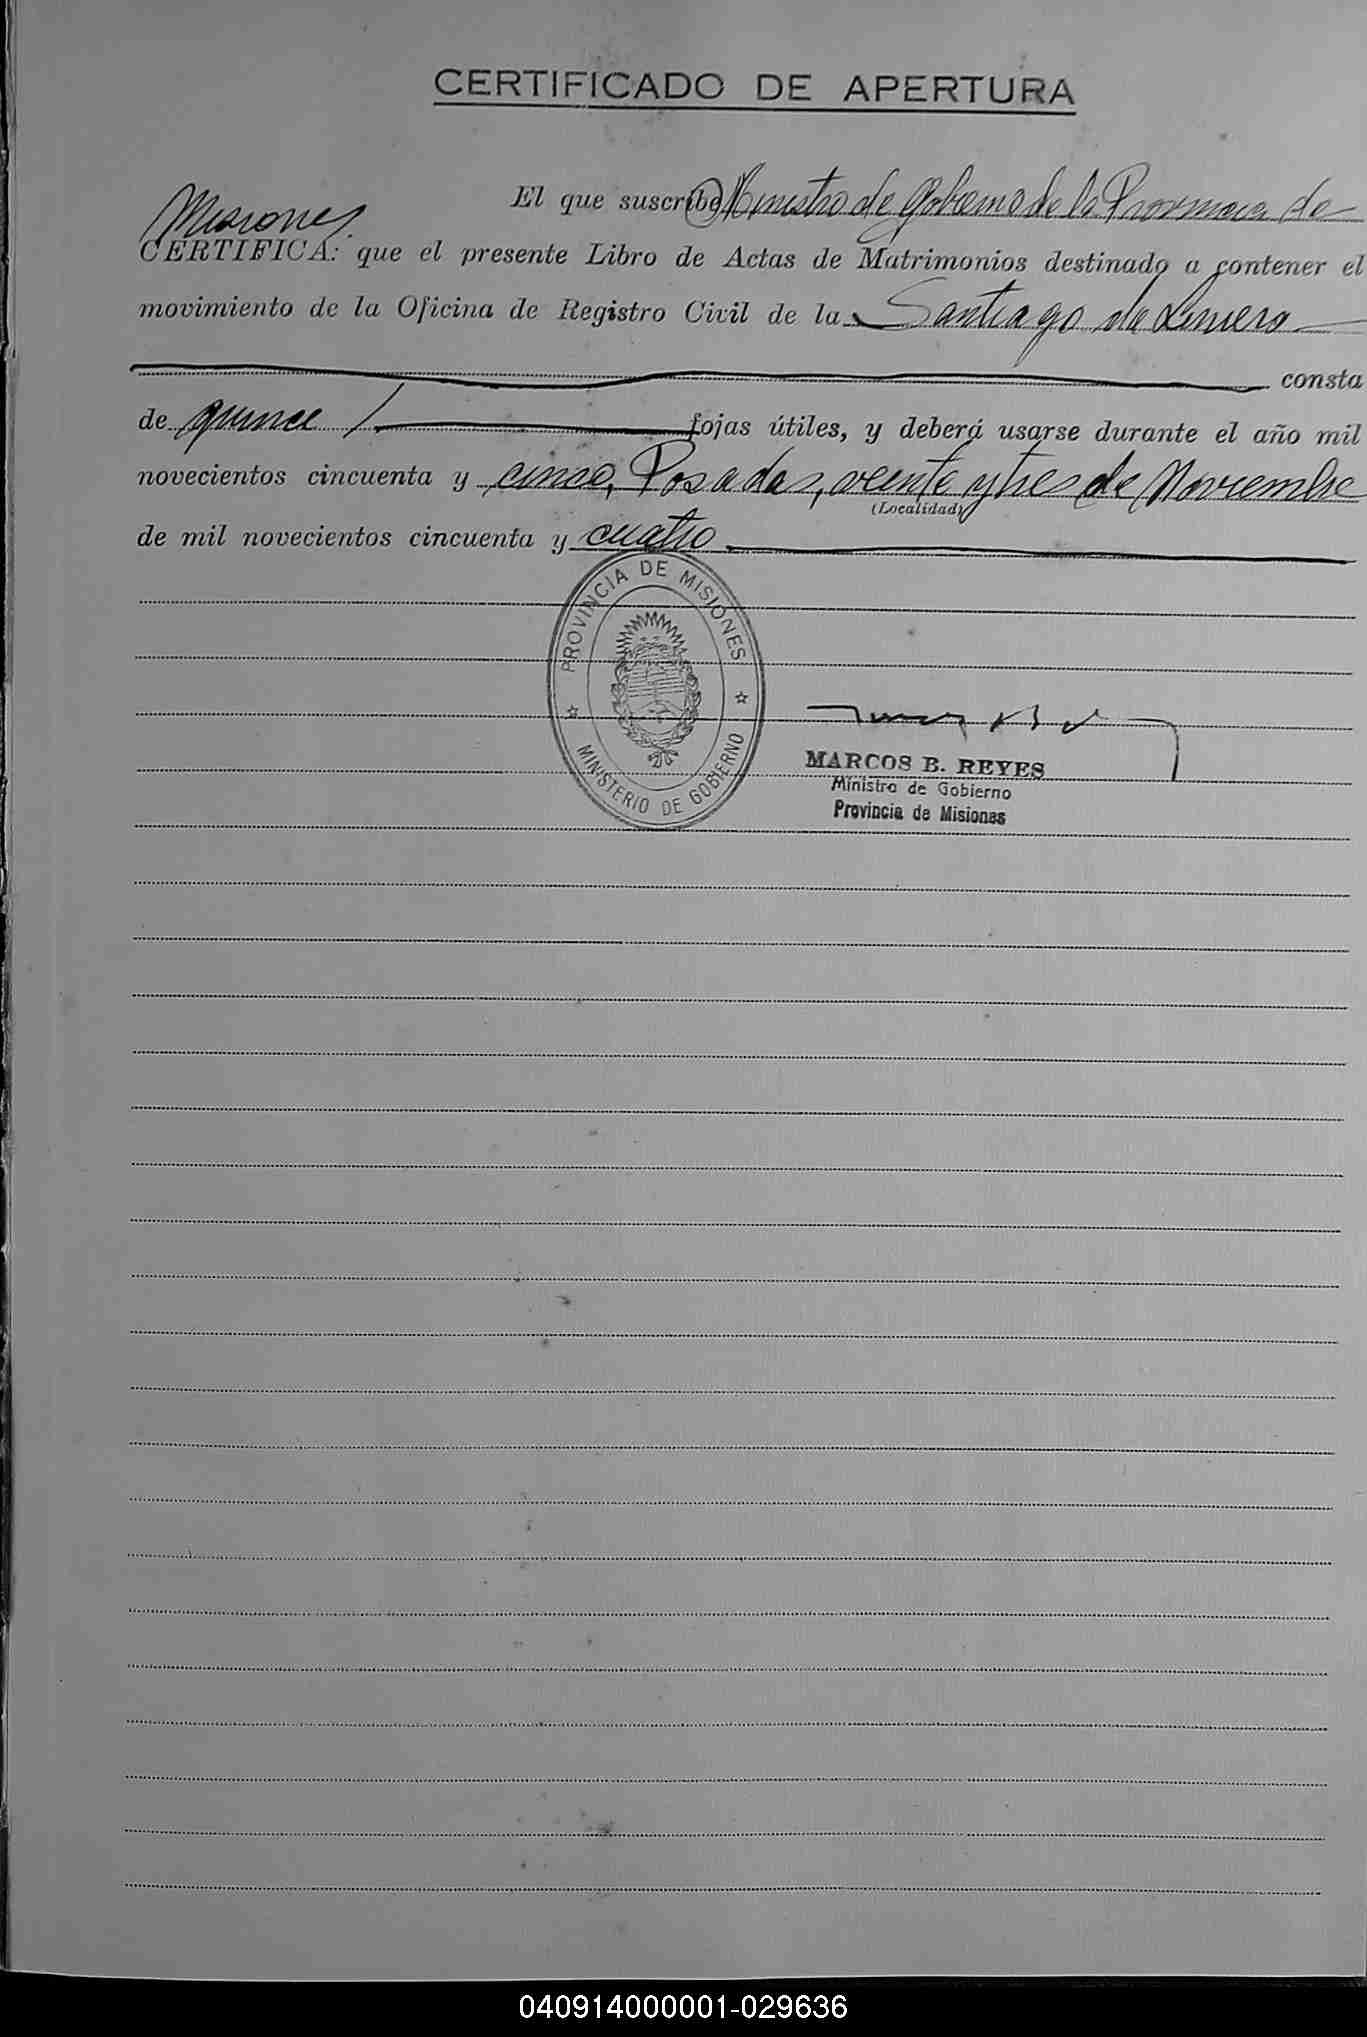 CERTIFICADO DE APERTURA
El que suscribe Ministro de Gobierno de la Provincia de
Misiones
CERTIFICA: que el presente Libro de Actas de Matrimonios destinado a contener el
movimiento de la Oficina de Registro Civil de la Santiago de Liniers
consta
de quince / fojas útiles, y deberá usarse durante el año mil
novecientos cincuenta y cinco, Posadas, veinte y tres de Noviembre
(Localidad)
de mil novecientos cincuenta y cuatro
PROVINCIA DE MISIONES
MINISTERIO DE GOBIERNO
MARCOS B. REYES
Ministro de Gobierno
Provincia de Misiones
040914000001-029636